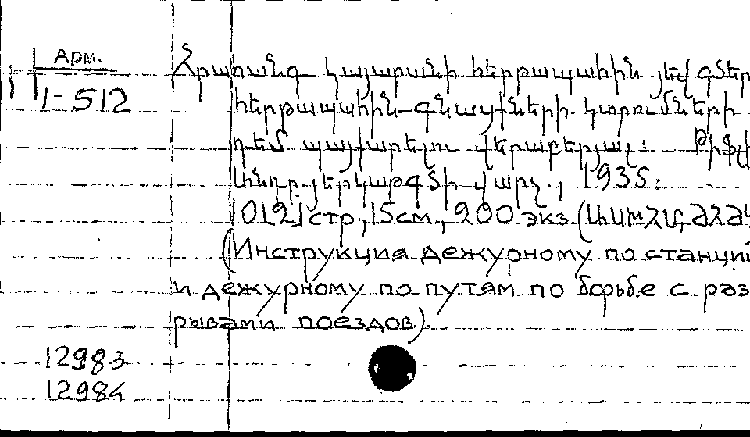 Арм.
1-512
Հրահանգ կայարանի հերթապահին յեվ գծեր
հերթապահին-գնացքների կտրումների
դեմ պայքարելու վերաբերյալ: Թիֆլ
Անդր.յերկաթգծի վարչ., 1935:
[012]стр, 15см., 200 экз
(Инструкция дежурному по станции
и дежурному по путям по борьбе с раз
рывами поездов)
12983
12984